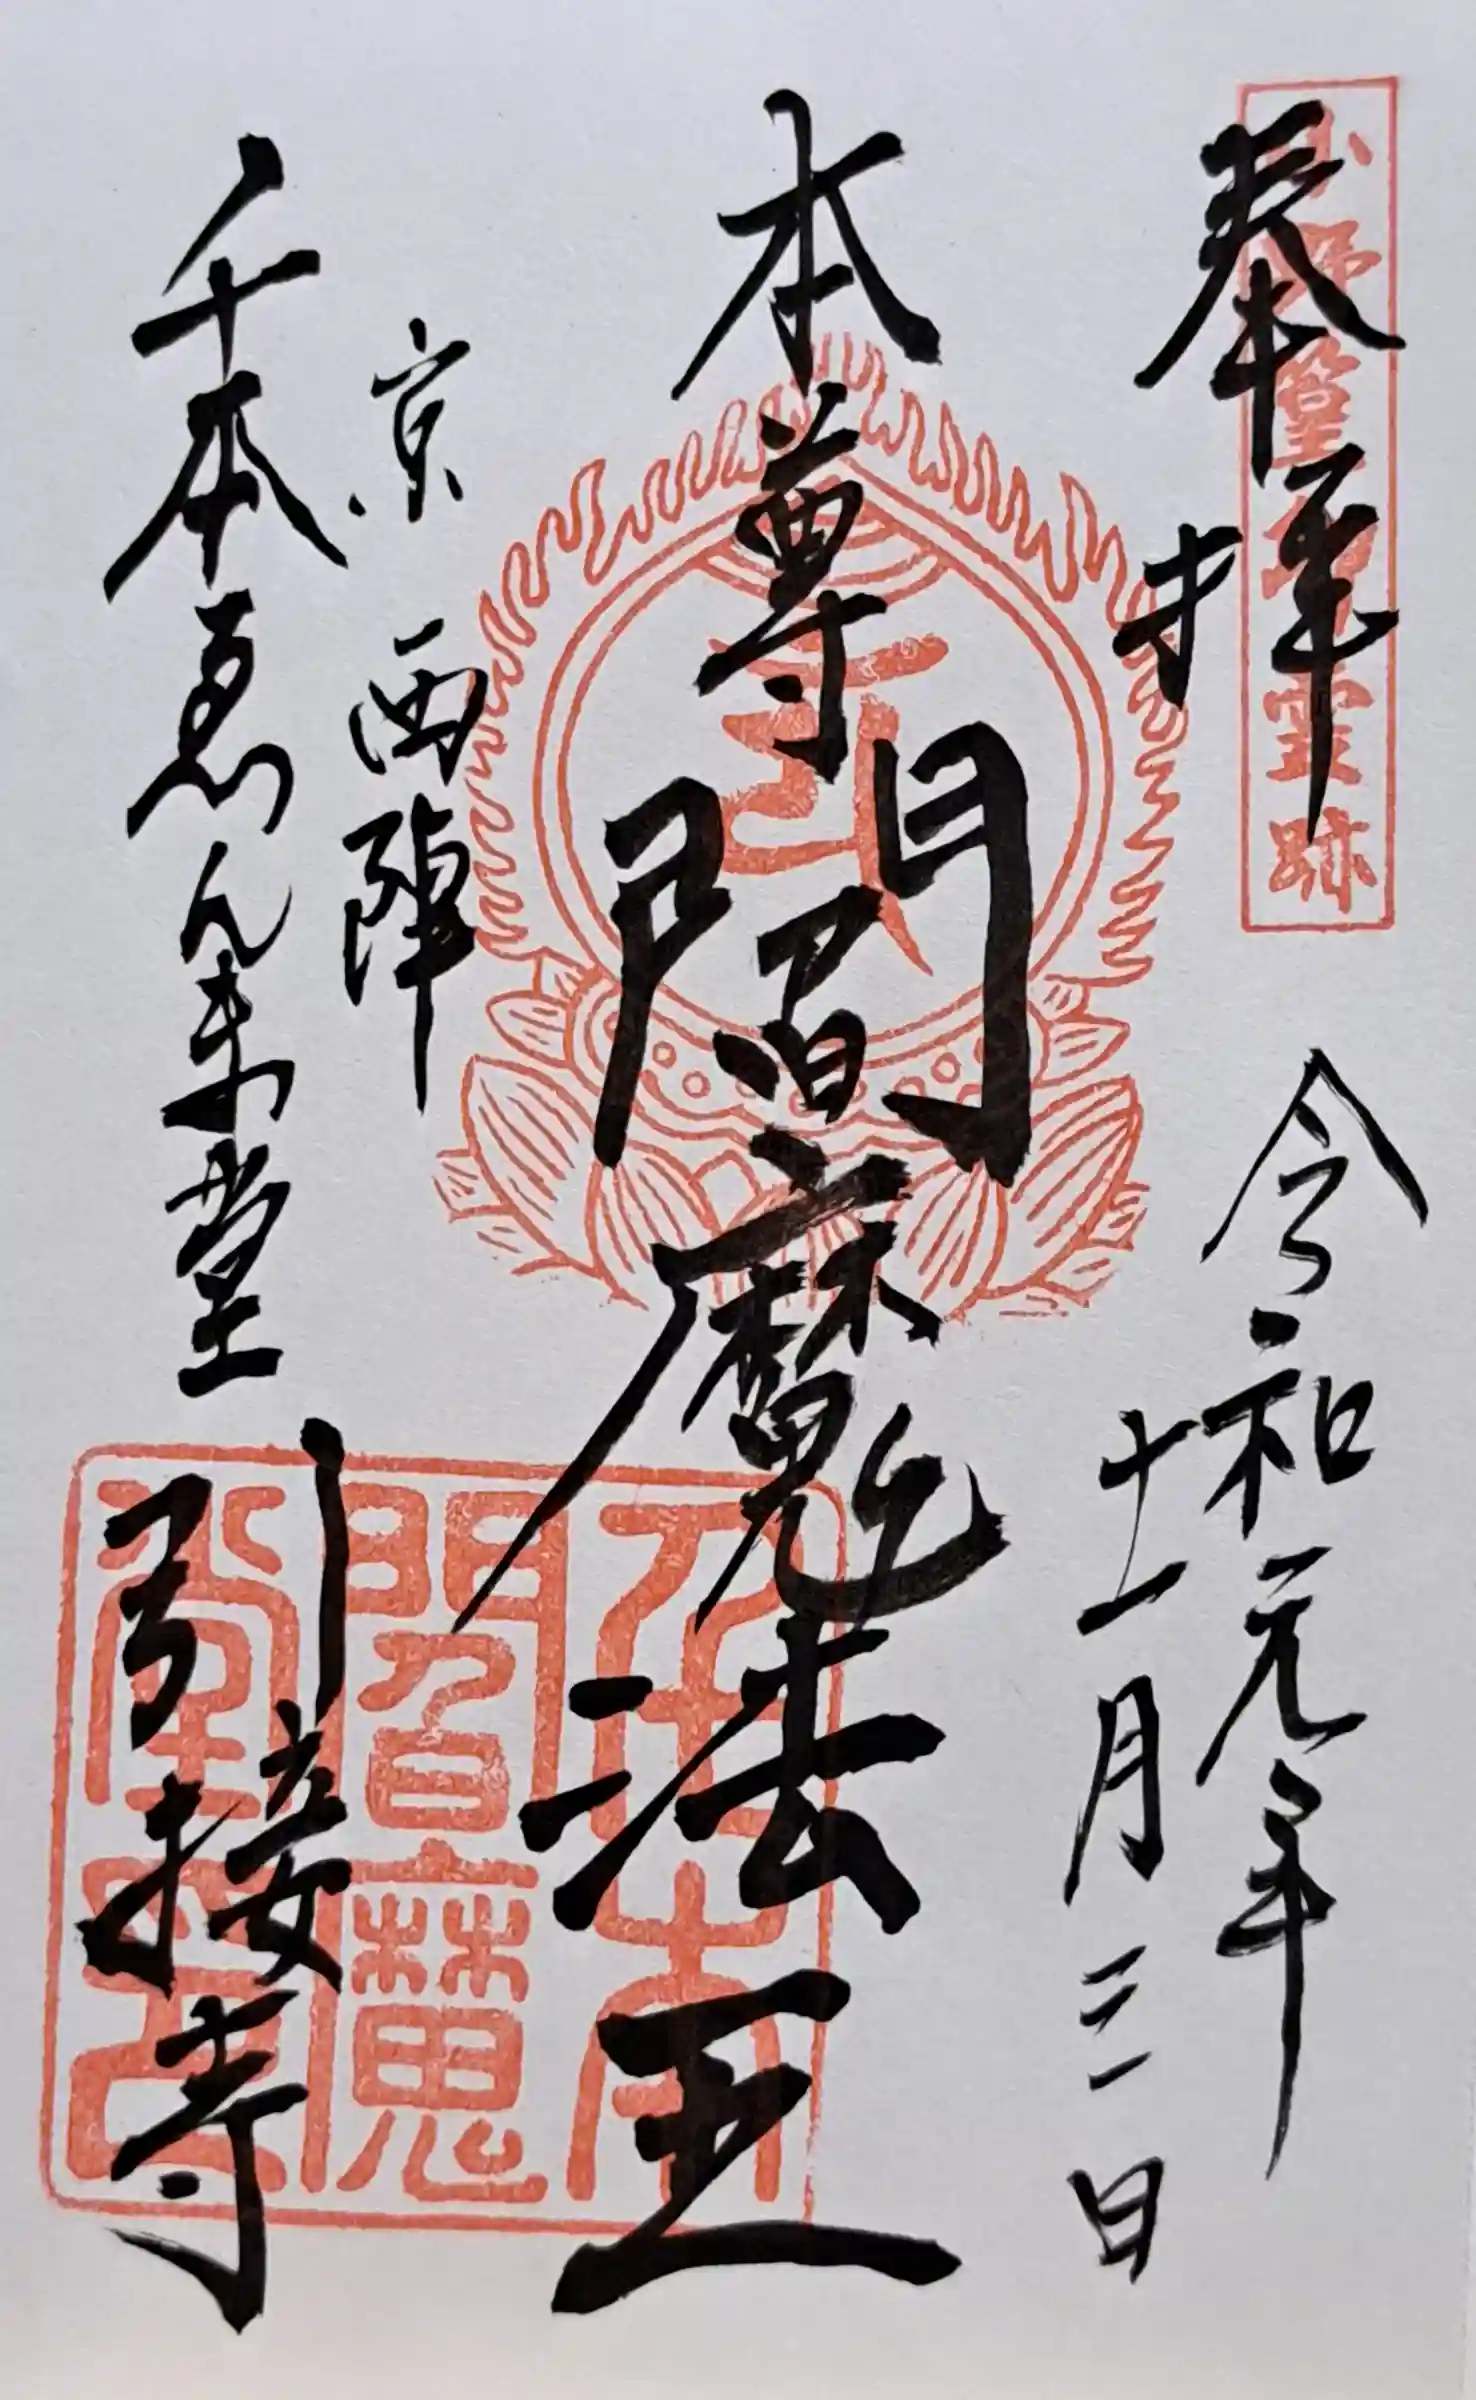 奉拝
小野篁卿霊跡
令和元年
十一月三日
本尊閻魔法王
京西陣
千本ゑんま堂
引接寺
閻魔
堂印